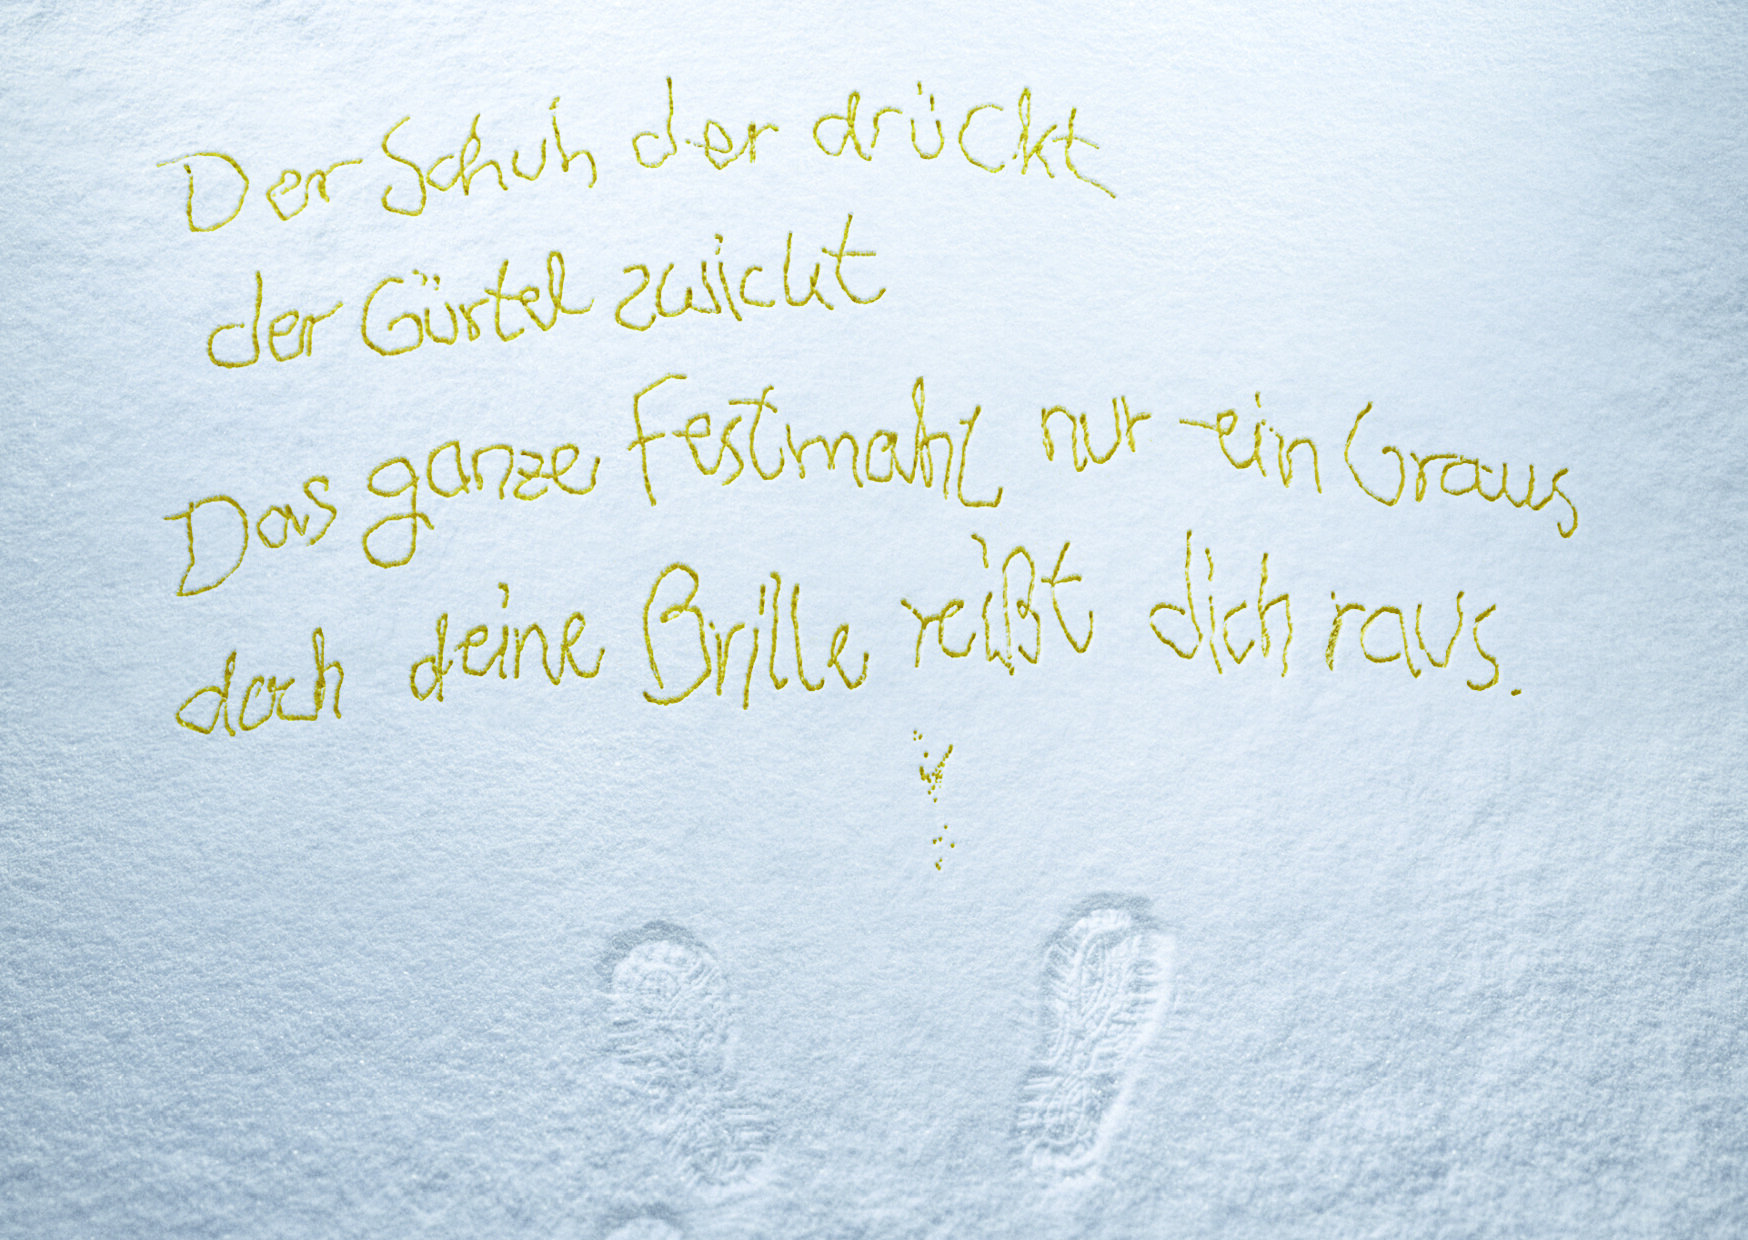 Der Schuh der drückt
der Gürtel zwickt
Das ganze Festmahl nur ein Graus
doch deine Brille reißt dich raus.